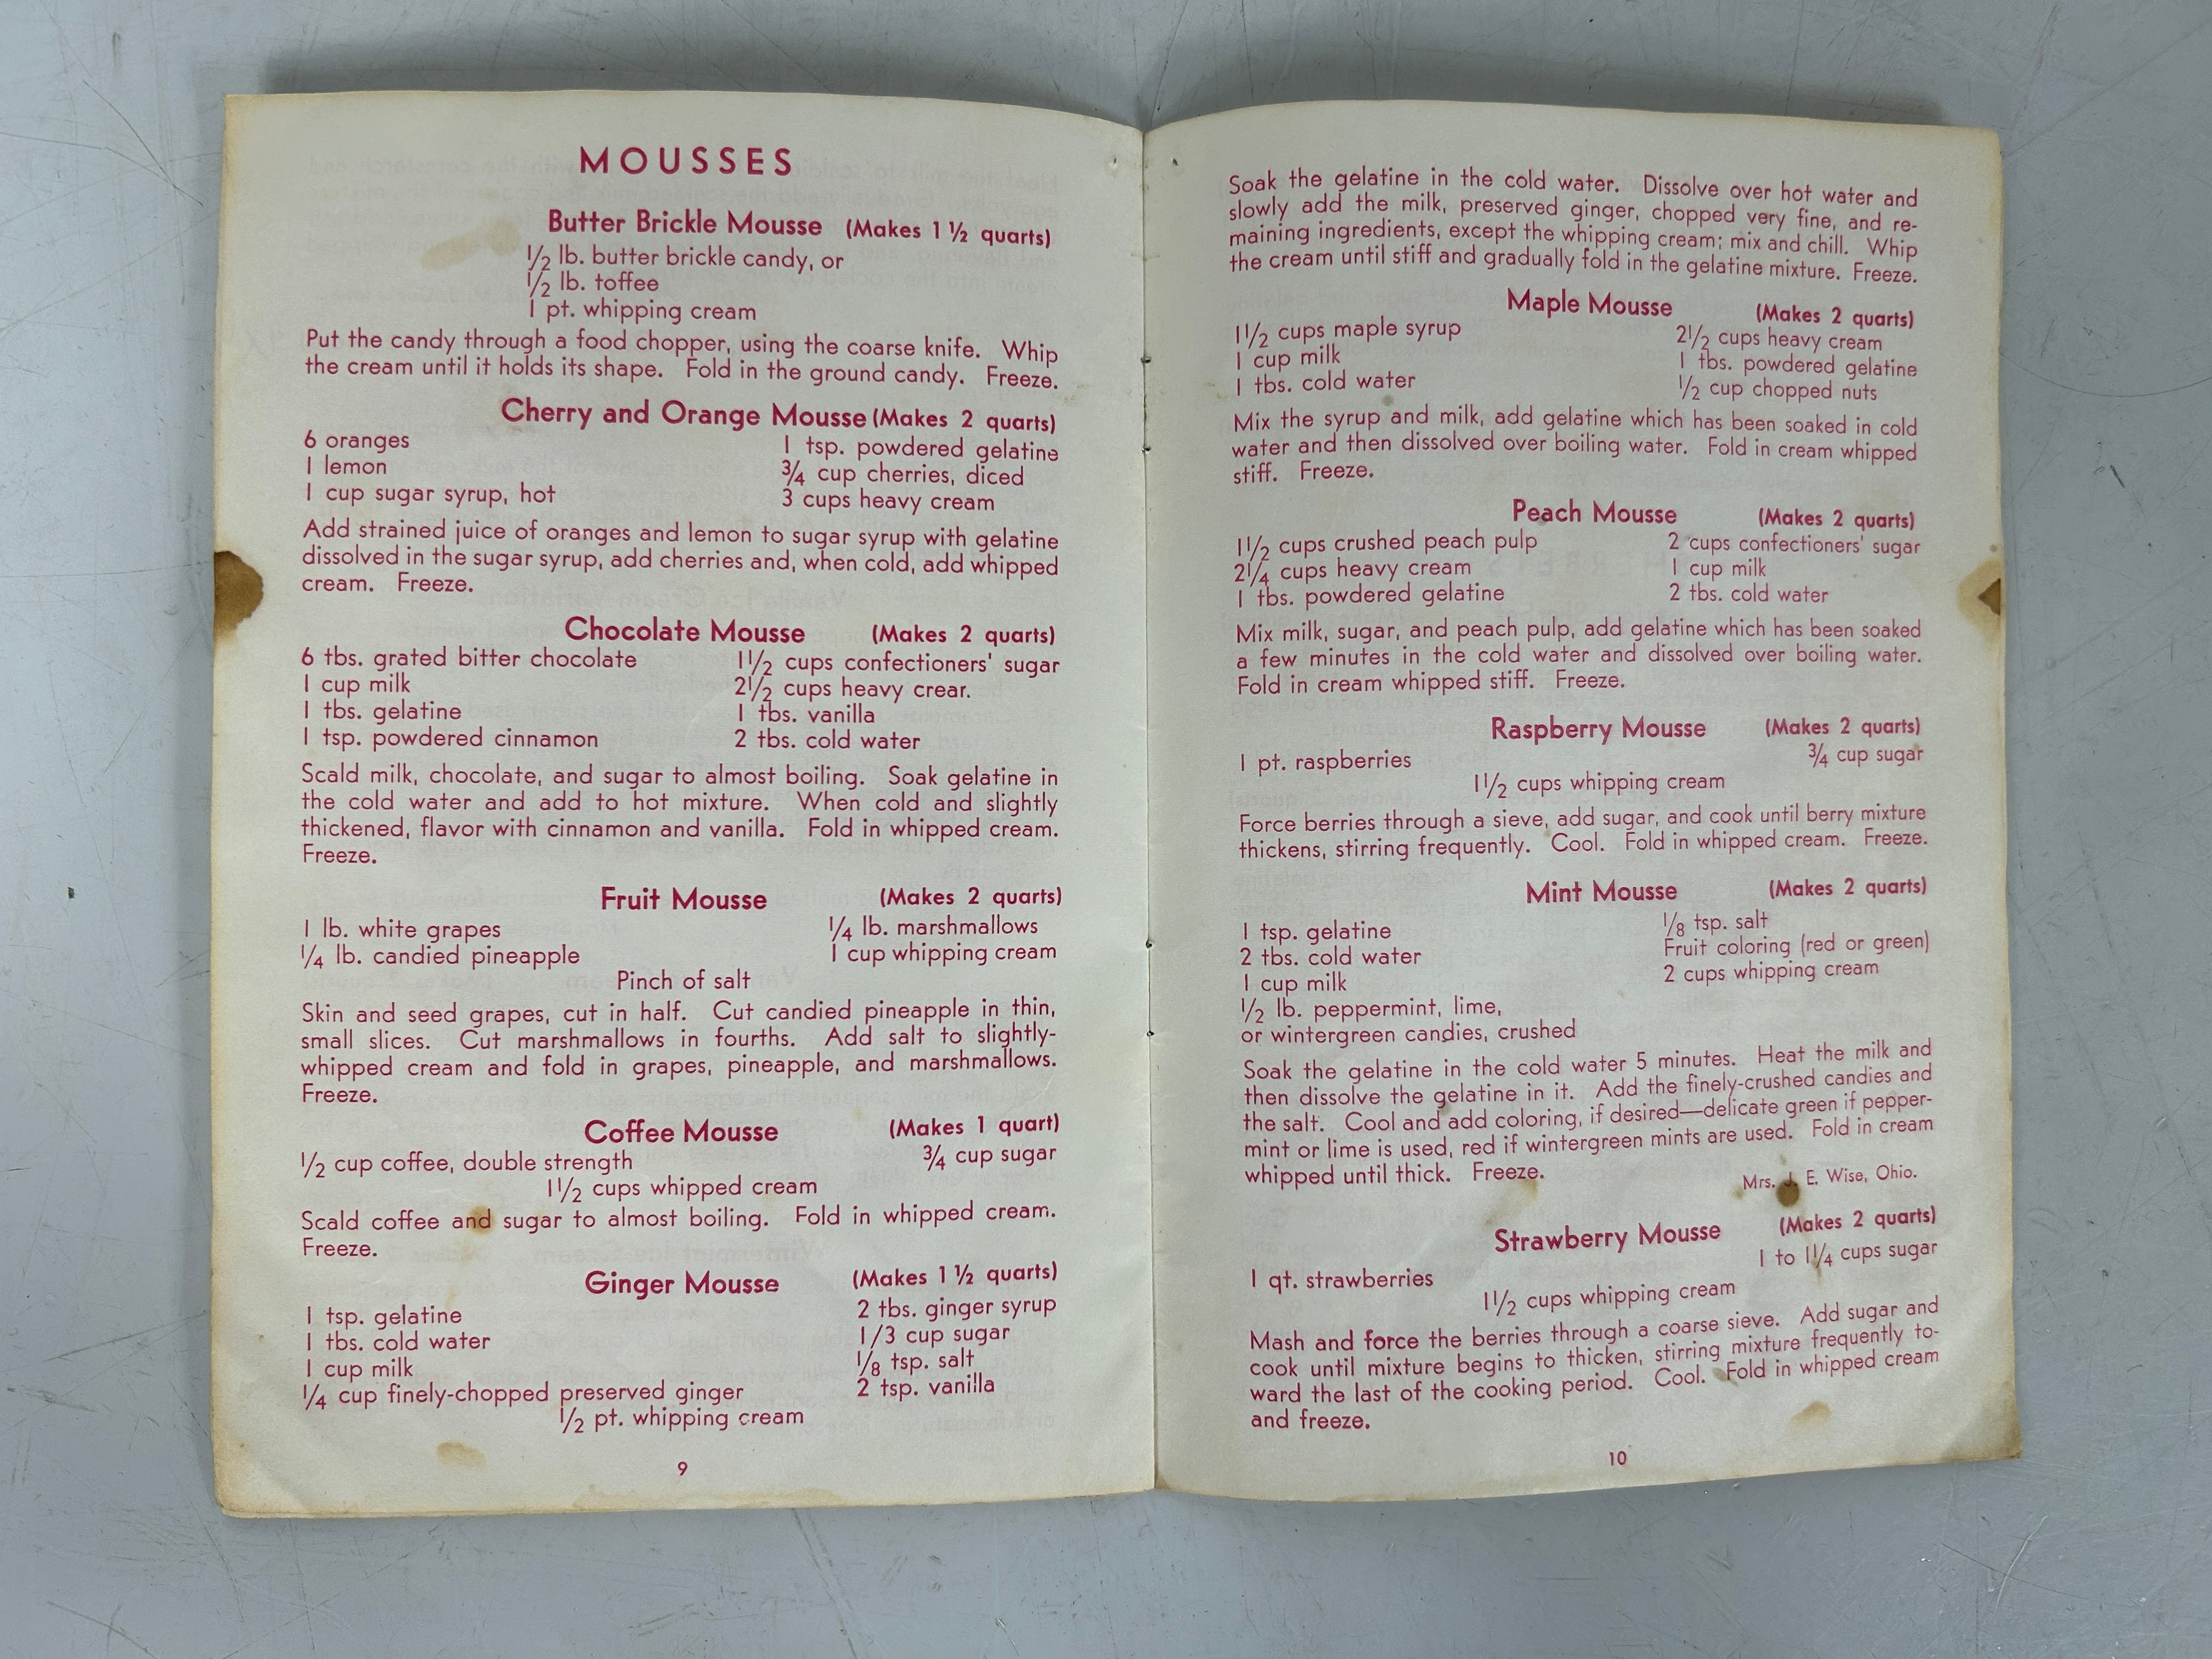 MOUSSES
Butter Brickle Mousse (Makes 1 ½ quarts)
½ lb. butter brickle candy, or
½ lb. toffee
1 pt. whipping cream
Put the candy through a food chopper, using the coarse knife. Whip
the cream until it holds its shape. Fold in the ground candy. Freeze.
Cherry and Orange Mousse (Makes 2 quarts)
6 oranges 1 tsp. powdered gelatine
1 lemon ¾ cup cherries, diced
1 cup sugar syrup, hot 3 cups heavy cream
Add strained juice of oranges and lemon to sugar syrup with gelatine
dissolved in the sugar syrup, add cherries and, when cold, add whipped
cream. Freeze.
Chocolate Mousse (Makes 2 quarts)
6 tbs. grated bitter chocolate 1½ cups confectioners' sugar
1 cup milk 2½ cups heavy crear.
1 tbs. gelatine 1 tbs. vanilla
1 tsp. powdered cinnamon 2 tbs. cold water
Scald milk, chocolate, and sugar to almost boiling. Soak gelatine in
the cold water and add to hot mixture. When cold and slightly
thickened, flavor with cinnamon and vanilla. Fold in whipped cream.
Freeze.
Fruit Mousse (Makes 2 quarts)
1 lb. white grapes ¼ lb. marshmallows
¼ lb. candied pineapple 1 cup whipping cream
Pinch of salt
Skin and seed grapes, cut in half. Cut candied pineapple in thin,
small slices. Cut marshmallows in fourths. Add salt to slightly-
whipped cream and fold in grapes, pineapple, and marshmallows.
Freeze.
Coffee Mousse (Makes 1 quart)
½ cup coffee, double strength ¾ cup sugar
1½ cups whipped cream
Scald coffee and sugar to almost boiling. Fold in whipped cream.
Freeze.
Ginger Mousse (Makes 1 ½ quarts)
1 tsp. gelatine 2 tbs. ginger syrup
1 tbs. cold water 1/3 cup sugar
1 cup milk ⅛ tsp. salt
¼ cup finely-chopped preserved ginger 2 tsp. vanilla
½ pt. whipping cream
9
Soak the gelatine in the cold water. Dissolve over hot water and
slowly add the milk, preserved ginger, chopped very fine, and re-
maining ingredients, except the whipping cream; mix and chill. Whip
the cream until stiff and gradually fold in the gelatine mixture. Freeze.
Maple Mousse (Makes 2 quarts)
1½ cups maple syrup 2½ cups heavy cream
1 cup milk 1 tbs. powdered gelatine
1 tbs. cold water ½ cup chopped nuts
Mix the syrup and milk, add gelatine which has been soaked in cold
water and then dissolved over boiling water. Fold in cream whipped
stiff. Freeze.
Peach Mousse (Makes 2 quarts)
1½ cups crushed peach pulp 2 cups confectioners' sugar
2¼ cups heavy cream 1 cup milk
1 tbs. powdered gelatine 2 tbs. cold water
Mix milk, sugar, and peach pulp, add gelatine which has been soaked
a few minutes in the cold water and dissolved over boiling water.
Fold in cream whipped stiff. Freeze.
Raspberry Mousse (Makes 2 quarts)
1 pt. raspberries ¾ cup sugar
1½ cups whipping cream
Force berries through a sieve, add sugar, and cook until berry mixture
thickens, stirring frequently. Cool. Fold in whipped cream. Freeze.
Mint Mousse (Makes 2 quarts)
1 tsp. gelatine ⅛ tsp. salt
2 tbs. cold water Fruit coloring (red or green)
1 cup milk 2 cups whipping cream
½ lb. peppermint, lime,
or wintergreen candies, crushed
Soak the gelatine in the cold water 5 minutes. Heat the milk and
then dissolve the gelatine in it. Add the finely-crushed candies and
the salt. Cool and add coloring, if desired—delicate green if pepper-
mint or lime is used, red if wintergreen mints are used. Fold in cream
whipped until thick. Freeze.
Mrs. J. E. Wise, Ohio.
Strawberry Mousse (Makes 2 quarts)
1 qt. strawberries 1 to 1¼ cups sugar
1½ cups whipping cream
Mash and force the berries through a coarse sieve. Add sugar and
cook until mixture begins to thicken, stirring mixture frequently to-
ward the last of the cooking period. Cool. Fold in whipped cream
and freeze.
10